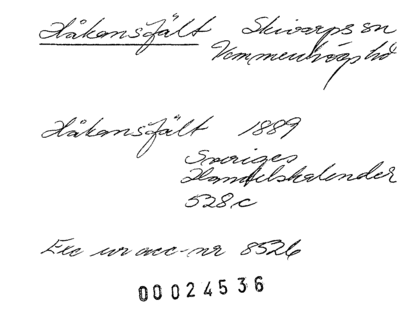 Håkansfält Skivarps sn
Vemmenhögs hd
Håkansfält 1889
Sveriges
Handelskalender
528 c
Exc ur acc-nr 8526
00024536